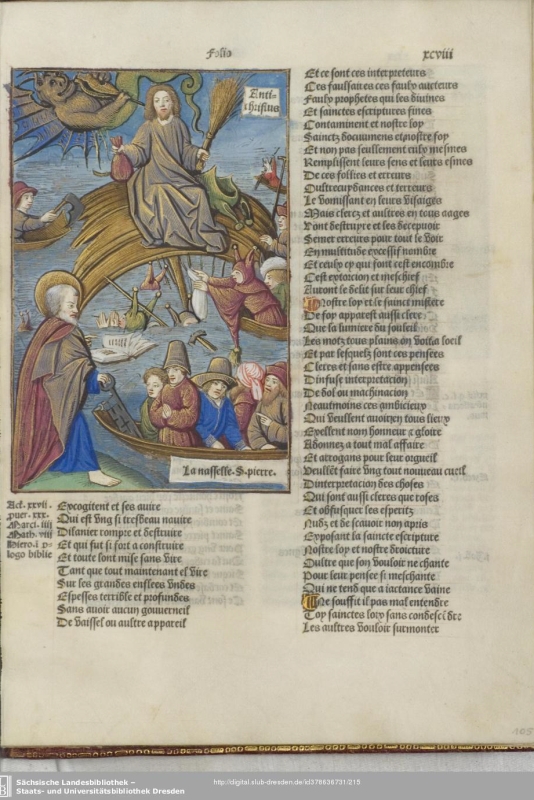 Folio
xcviii
Enti-
christus
La nasselle. S. pierre.
Act. xxvii.
prouer. xxx.
Marci. iiii
Math. viii
Hiero. i p-
logo biblie
Excogitent et ses auire
Qui est vng si tresbeau nauire
Dilanier rompre et destruire
Et qui fut si fort a construire
Et toute sont mise sans vire
Tant que tout maintenant el vire
Sur les grandes enflees vndes
Espesses terrible et profundes
Sans auoir aucun gouuerneil
De vaissel ou aultre appareil
Et ce sont ces interpreteurs
Ces faulsaires ces faulx aucteurs
Faulx prophetes qui les diuines
Et sainctes escriptures fines
Contaminent et nostre loy
Sainctz documens et nostre foy
Et non pas seullement eulx mesmes
Remplissent leurs sens et leurs esmes
De ces follies et erreurs
Oultrecuydances et terreurs
Le vomissant en leurs visaiges
Mais clercz et aultres en tous aages
Vont destruyre et les deceuoir
Semer erreurs pour tout le voir
En multitude excessif nombre
Et ceulx cy qui font cest encombre
Cest extorcion et meschief
Auront le delit sur leur chief
Nostre loy et le sainct mistere
De foy apparest aussi clere
Que la lumiere du souleil
Les motz tous plains on voit a loeil
Et par lesquelz sont ces pensees
Cleres et sans estre appensees
Dinfuse interpretacion
De dol ou machinacion
Neautmoins ces ambicieux
Qui veullent auoir en tous lieux
Excellent nom honneur et gloire
Abonnez a tout mal affaire
Et arrogans pour leur orgueil
Veullent faire vng tout nouueau cueil
Dinterpretacion des choses
Qui sont aussi cleres que roses
Et obfusquer les espritz
Nudz et de scauoir non apris
Exposant la saincte escripture
Nostre loy et nostre droicture
Oultre que son vouloir ne chante
Pour leur pensee si meschante
Qui ne tend que a iactance vaine
Ne souffit il pas mal entendre
Toy sainctes loix sans condescēdre
Les aultres vouloir surmonter
105
Sächsische Landesbibliothek –
Staats- und Universitätsbibliothek Dresden
http://digital.slub-dresden.de/id378636731/215